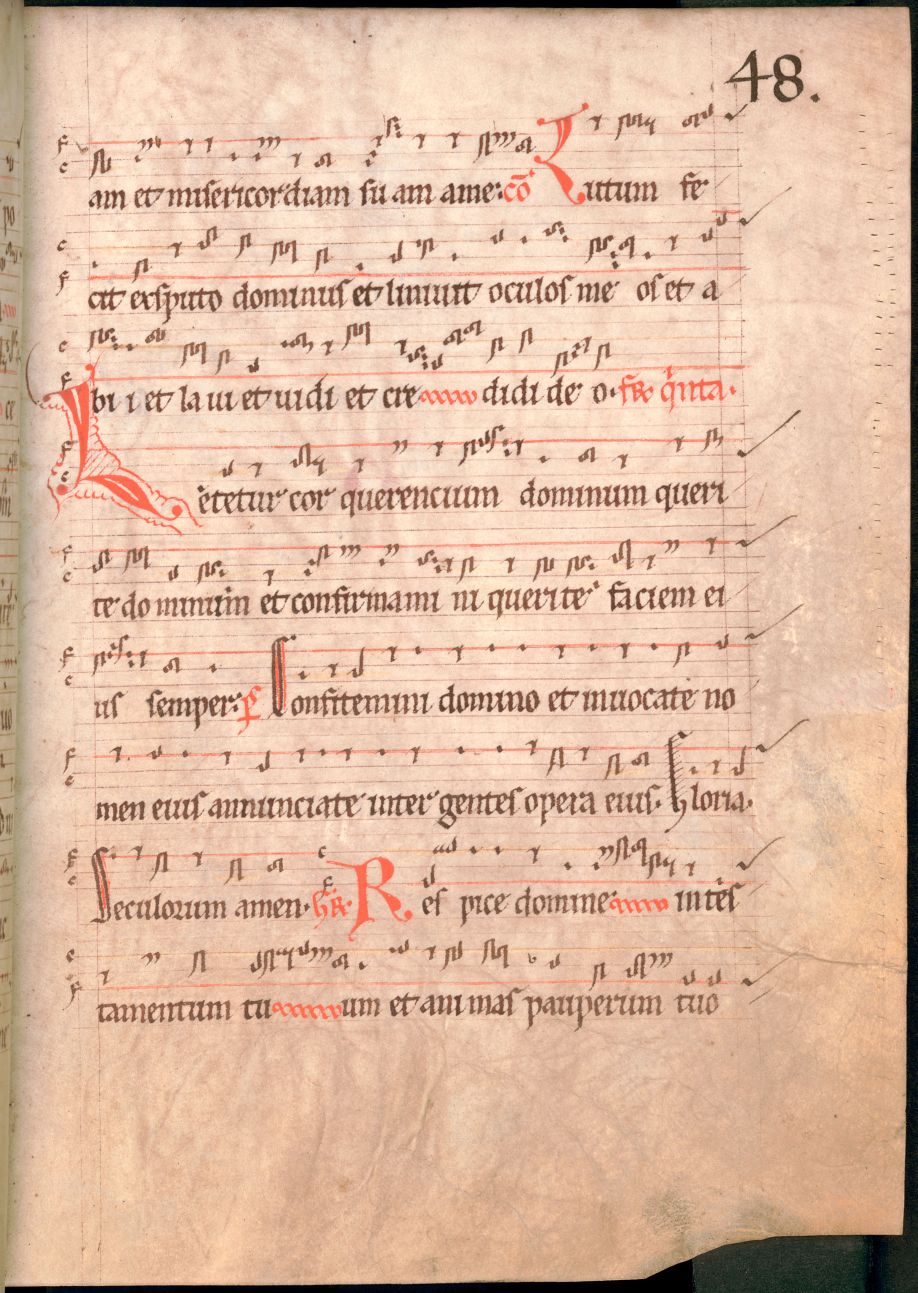 48.
am et misericordiam su am ame: cō Lutum fe
cit exsputo dominus et liniuit oculos me os et a
bi i et la ui et uidi et cre didi de o. fr̄ q̇nta.
Letetur cor querencium dominum queri
te do minum et confirmami ni querite faciem ei
us semper: p̄s Confitemini domino et inuocate no
men eius annunciate inter gentes opera eius. Gloria.
Seculorum amen. Res pice domine in tes
tamentum tu um et ani mas pauperum tuo